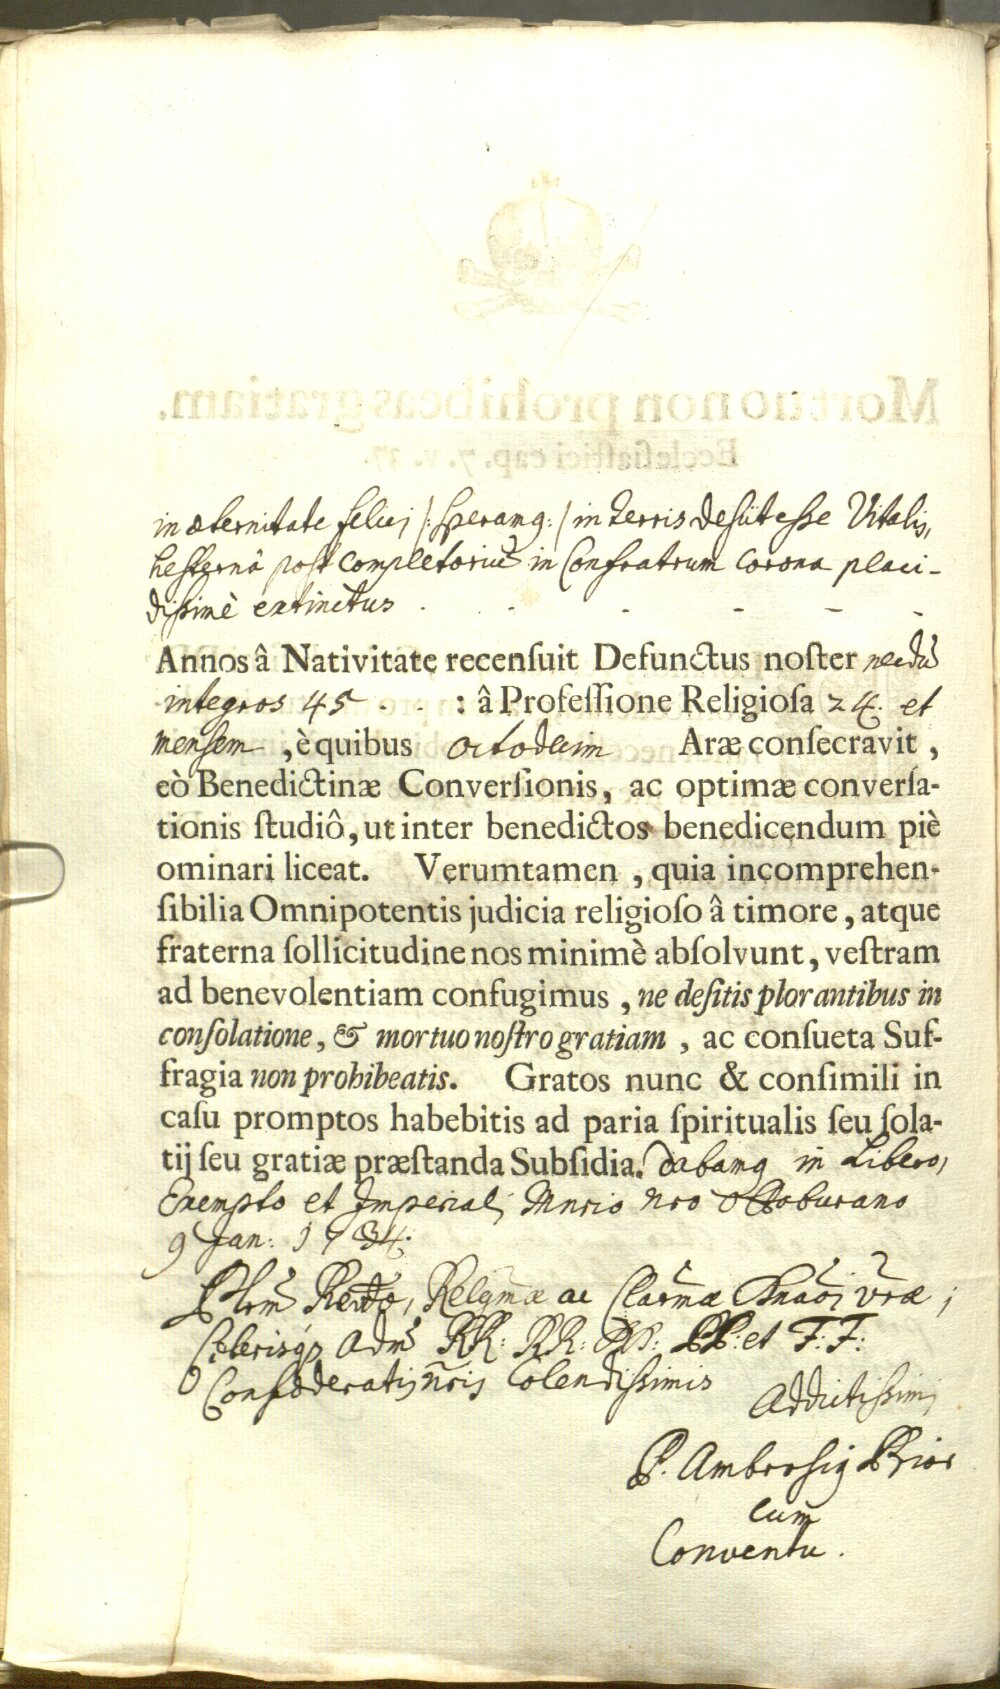 Mortuo non prohibeas gratiam.
Ecclesiastici cap. 7. v. 37.
in æternitate felici /: speramq: / in terris desiit esse Vitalis,
hesternâ post Completorium in Confratrum corona placi-
dissimè extinctus . - - - -
Annos â Nativitate recensuit Defunctus noster necdū
integros 45 . . : â Professione Religiosa 24. et
mensem, è quibus octodecim Aræ consecravit,
eò Benedictinæ Conversionis, ac optimæ conversa-
tionis studiô, ut inter benedictos benedicendum piè
ominari liceat. Verumtamen, quia incomprehen-
sibilia Omnipotentis judicia religioso â timore, atque
fraterna sollicitudine nos minimè absolvunt, vestram
ad benevolentiam confugimus, ne desitis plorantibus in
consolatione, & mortuo nostro gratiam, ac consueta Suf-
fragia non prohibeatis. Gratos nunc & consimili in
casu promptos habebitis ad paria spiritualis seu sola-
tij seu gratiæ præstanda Subsidia. Dabamq in Libero,
Exempto et Imperiali Mnrio nro Ottoburano
9 Jan: 1734.
Rmæ ac Clarmæ vræ;
Cæterisq3 Adm RR: RR: PP: et F: F:
Confœderatis nris Colendissimis
Addictissimi
P. Ambrosiq Prior
cum
Conventu.